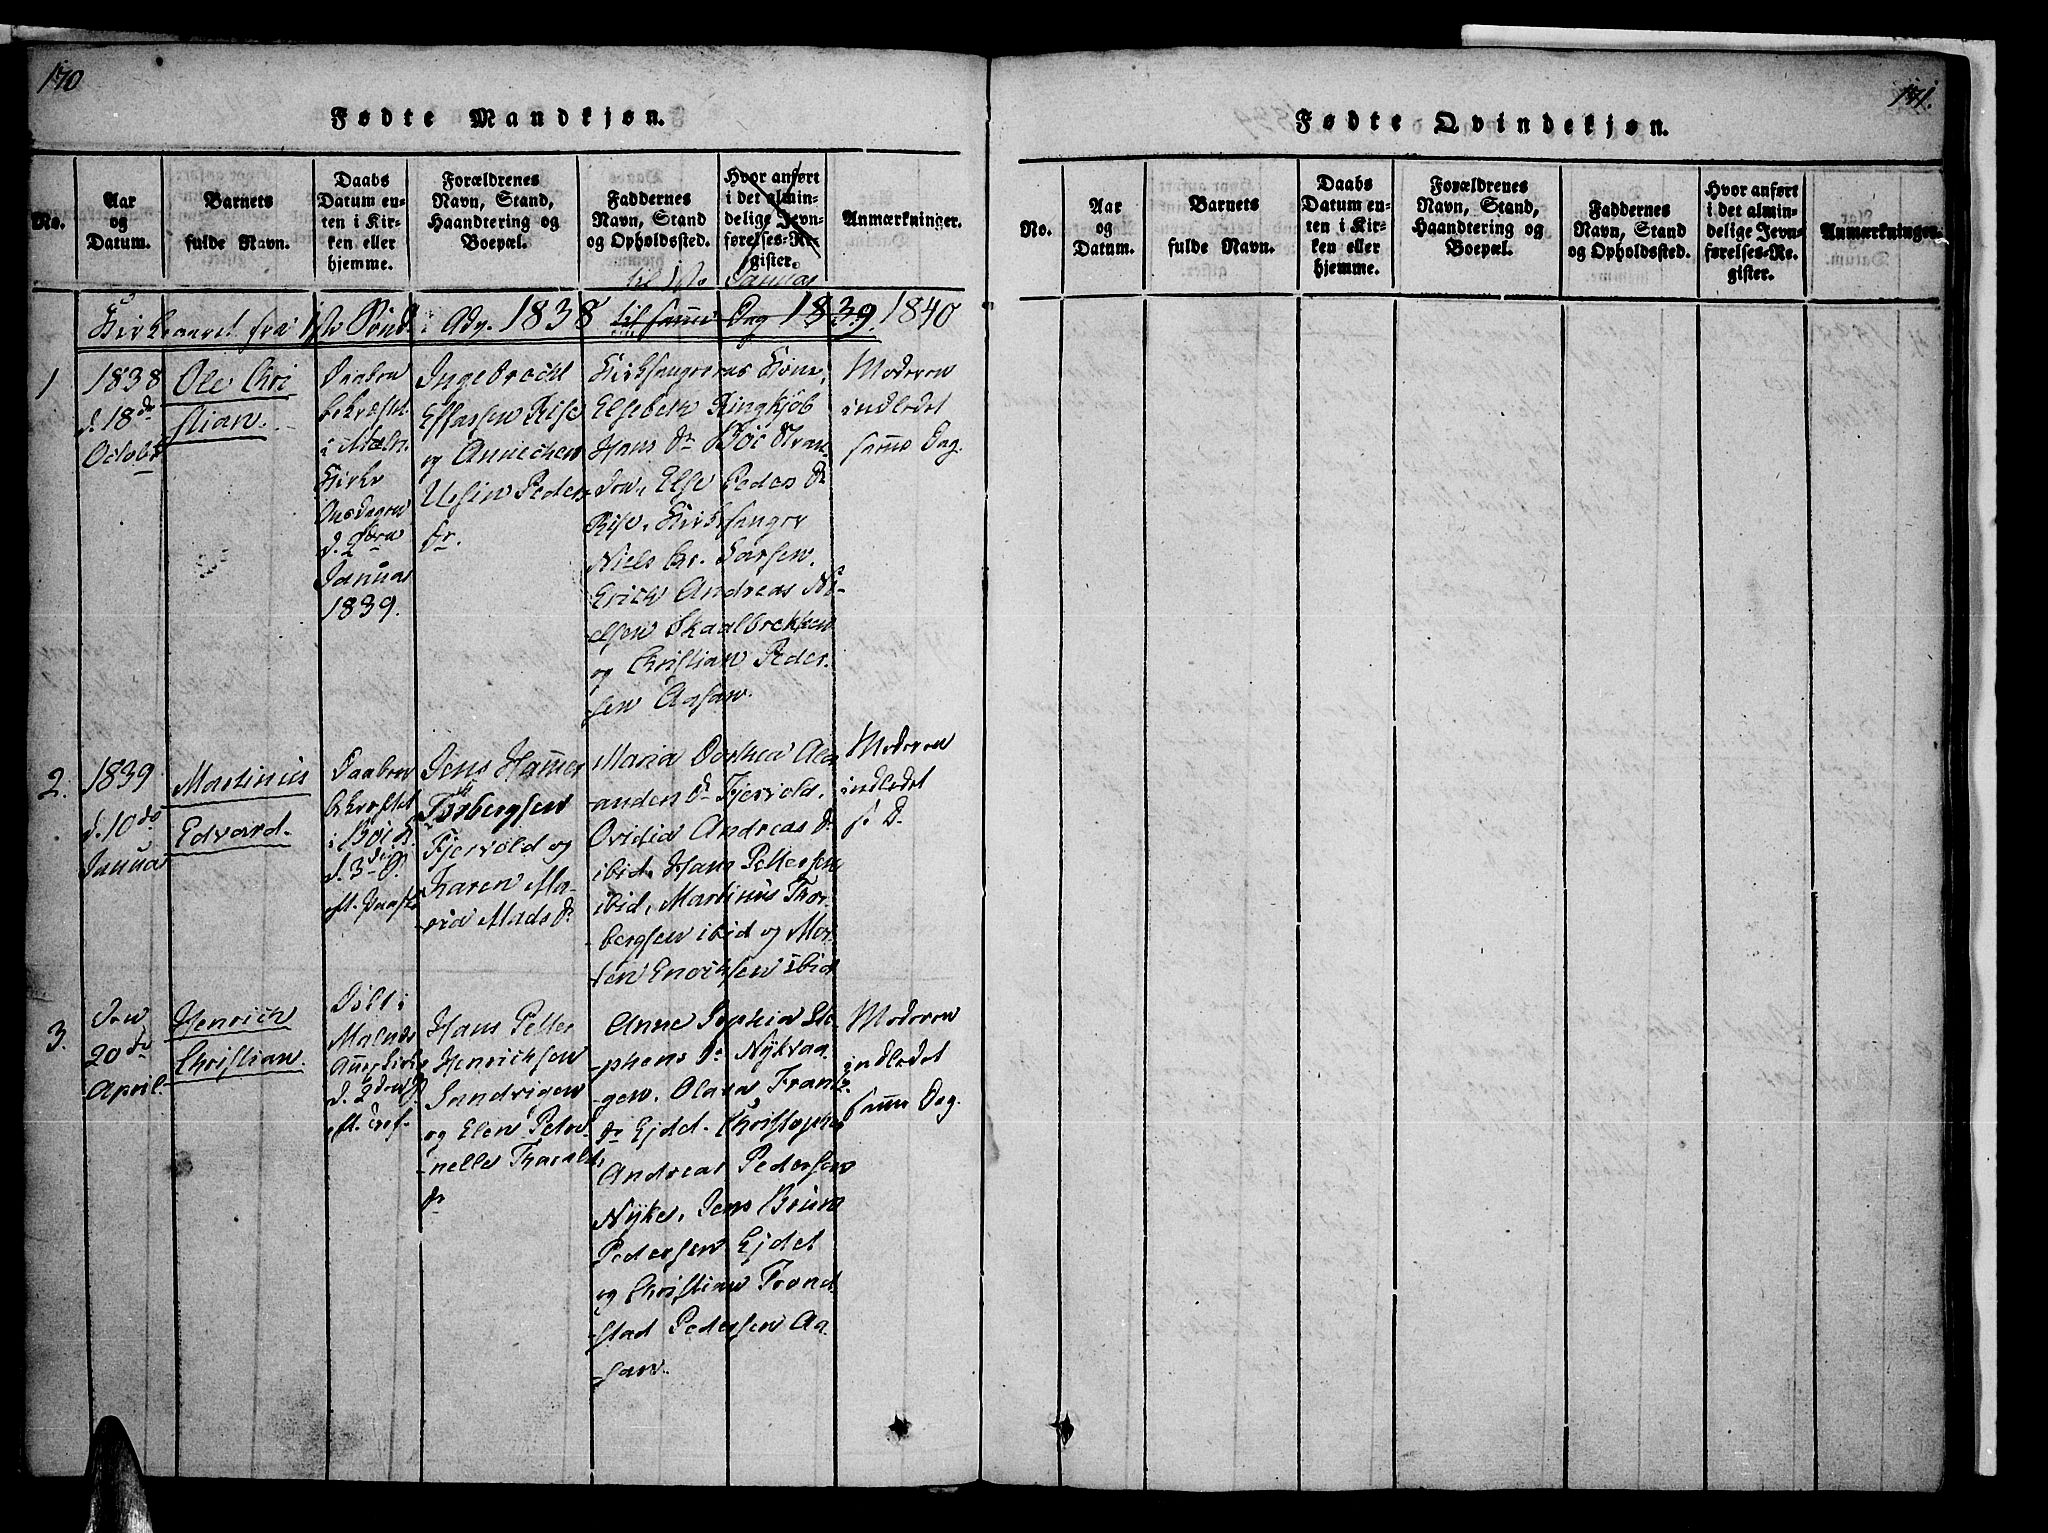 170
Fødte Mandkjøn.
No.
Aar
og
Datum.
Barnets
fulde Navn.
Daabs
Datum en-
ten i Kir-
ken eller
hjemme.
Forældrenes
Navn, Stand,
Haandtering og
Boepæl.
Faddernes
Navn, Stand
og Opholdssted.
Hvor anført
i det almin-
delige Jevn-
førelses-Re-
gister.
Anmærkninger.
til 1ste Januar
Kirkeaaret fra 1ste Sønd. i Adv. 1838 til samme Dag 1839. 1840
1
1838
d. 18de
Octobr
Ole Chri
stian.
Daaben
bekræftet
i Maln.
Kirke
Onsdagen
d. 2den
Januar
1839.
Ingebrecht
Essassen Riise
og Annichen
Peders
dr.
Kirkesangerens Kone,
Elsebeth Ringkjøb
Hans dr Böe
Else Peders dr
Riise, Kirkesanger
Niels Chr. Larsen,
Erich Andreas Ni-
elsen Skaalbrekken
og Christian Peder-
sen Aasan.
Moderen
indledet
samme Dag.
2.
1839
d. 10de
Janua
Martinus
Edvard.
Daaben
bekræftet
i Böe K.
d. 3die S.
eft. Paaske
Jens Hammer
Torbergsen
Fjervold og
Karen Ma-
ria Mads dr
Maria Dorthea
anden dr Fjervold,
Ovidia Andreas dr
ibid, Hans Pettersen
ibid, Martinus Thor-
bergsen ibid og Mor-
ten Enochsen ibid
Moderen
indledet
s. D.
3.
Den
20de
April.
Henrich
Christian.
Döbt i
Malnes
Annex Kirke
d. 2den S.
eft. Tref.
Hans Petter
Henrichsen
Sandvigen
og Elen Petro-
nelle Tharalds
dr
Anne Sophia Ste-
phens dr Nykvaa-
gen, Olava Frantz
dr Ejdet. Christopher
Andreas Pedersen
Nyke, Jens Bruun
Pedersen Ejdet
og Christian Trond-
stad Pedersen Aa-
san.
Moderen
indledet
samme Dag.
171.
Fødte Qvindekjøn.
No.
Aar
og
Datum.
Barnets
fulde Navn.
Daabs
Datum en-
ten i Kir-
ken eller
hjemme.
Forældrenes
Navn, Stand,
Haandtering og
Boepæl.
Faddernes
Navn, Stand
og Opholdssted.
Hvor anført
i det almin-
delige Jevn-
førelses-Re-
gister.
Anmærkninger.